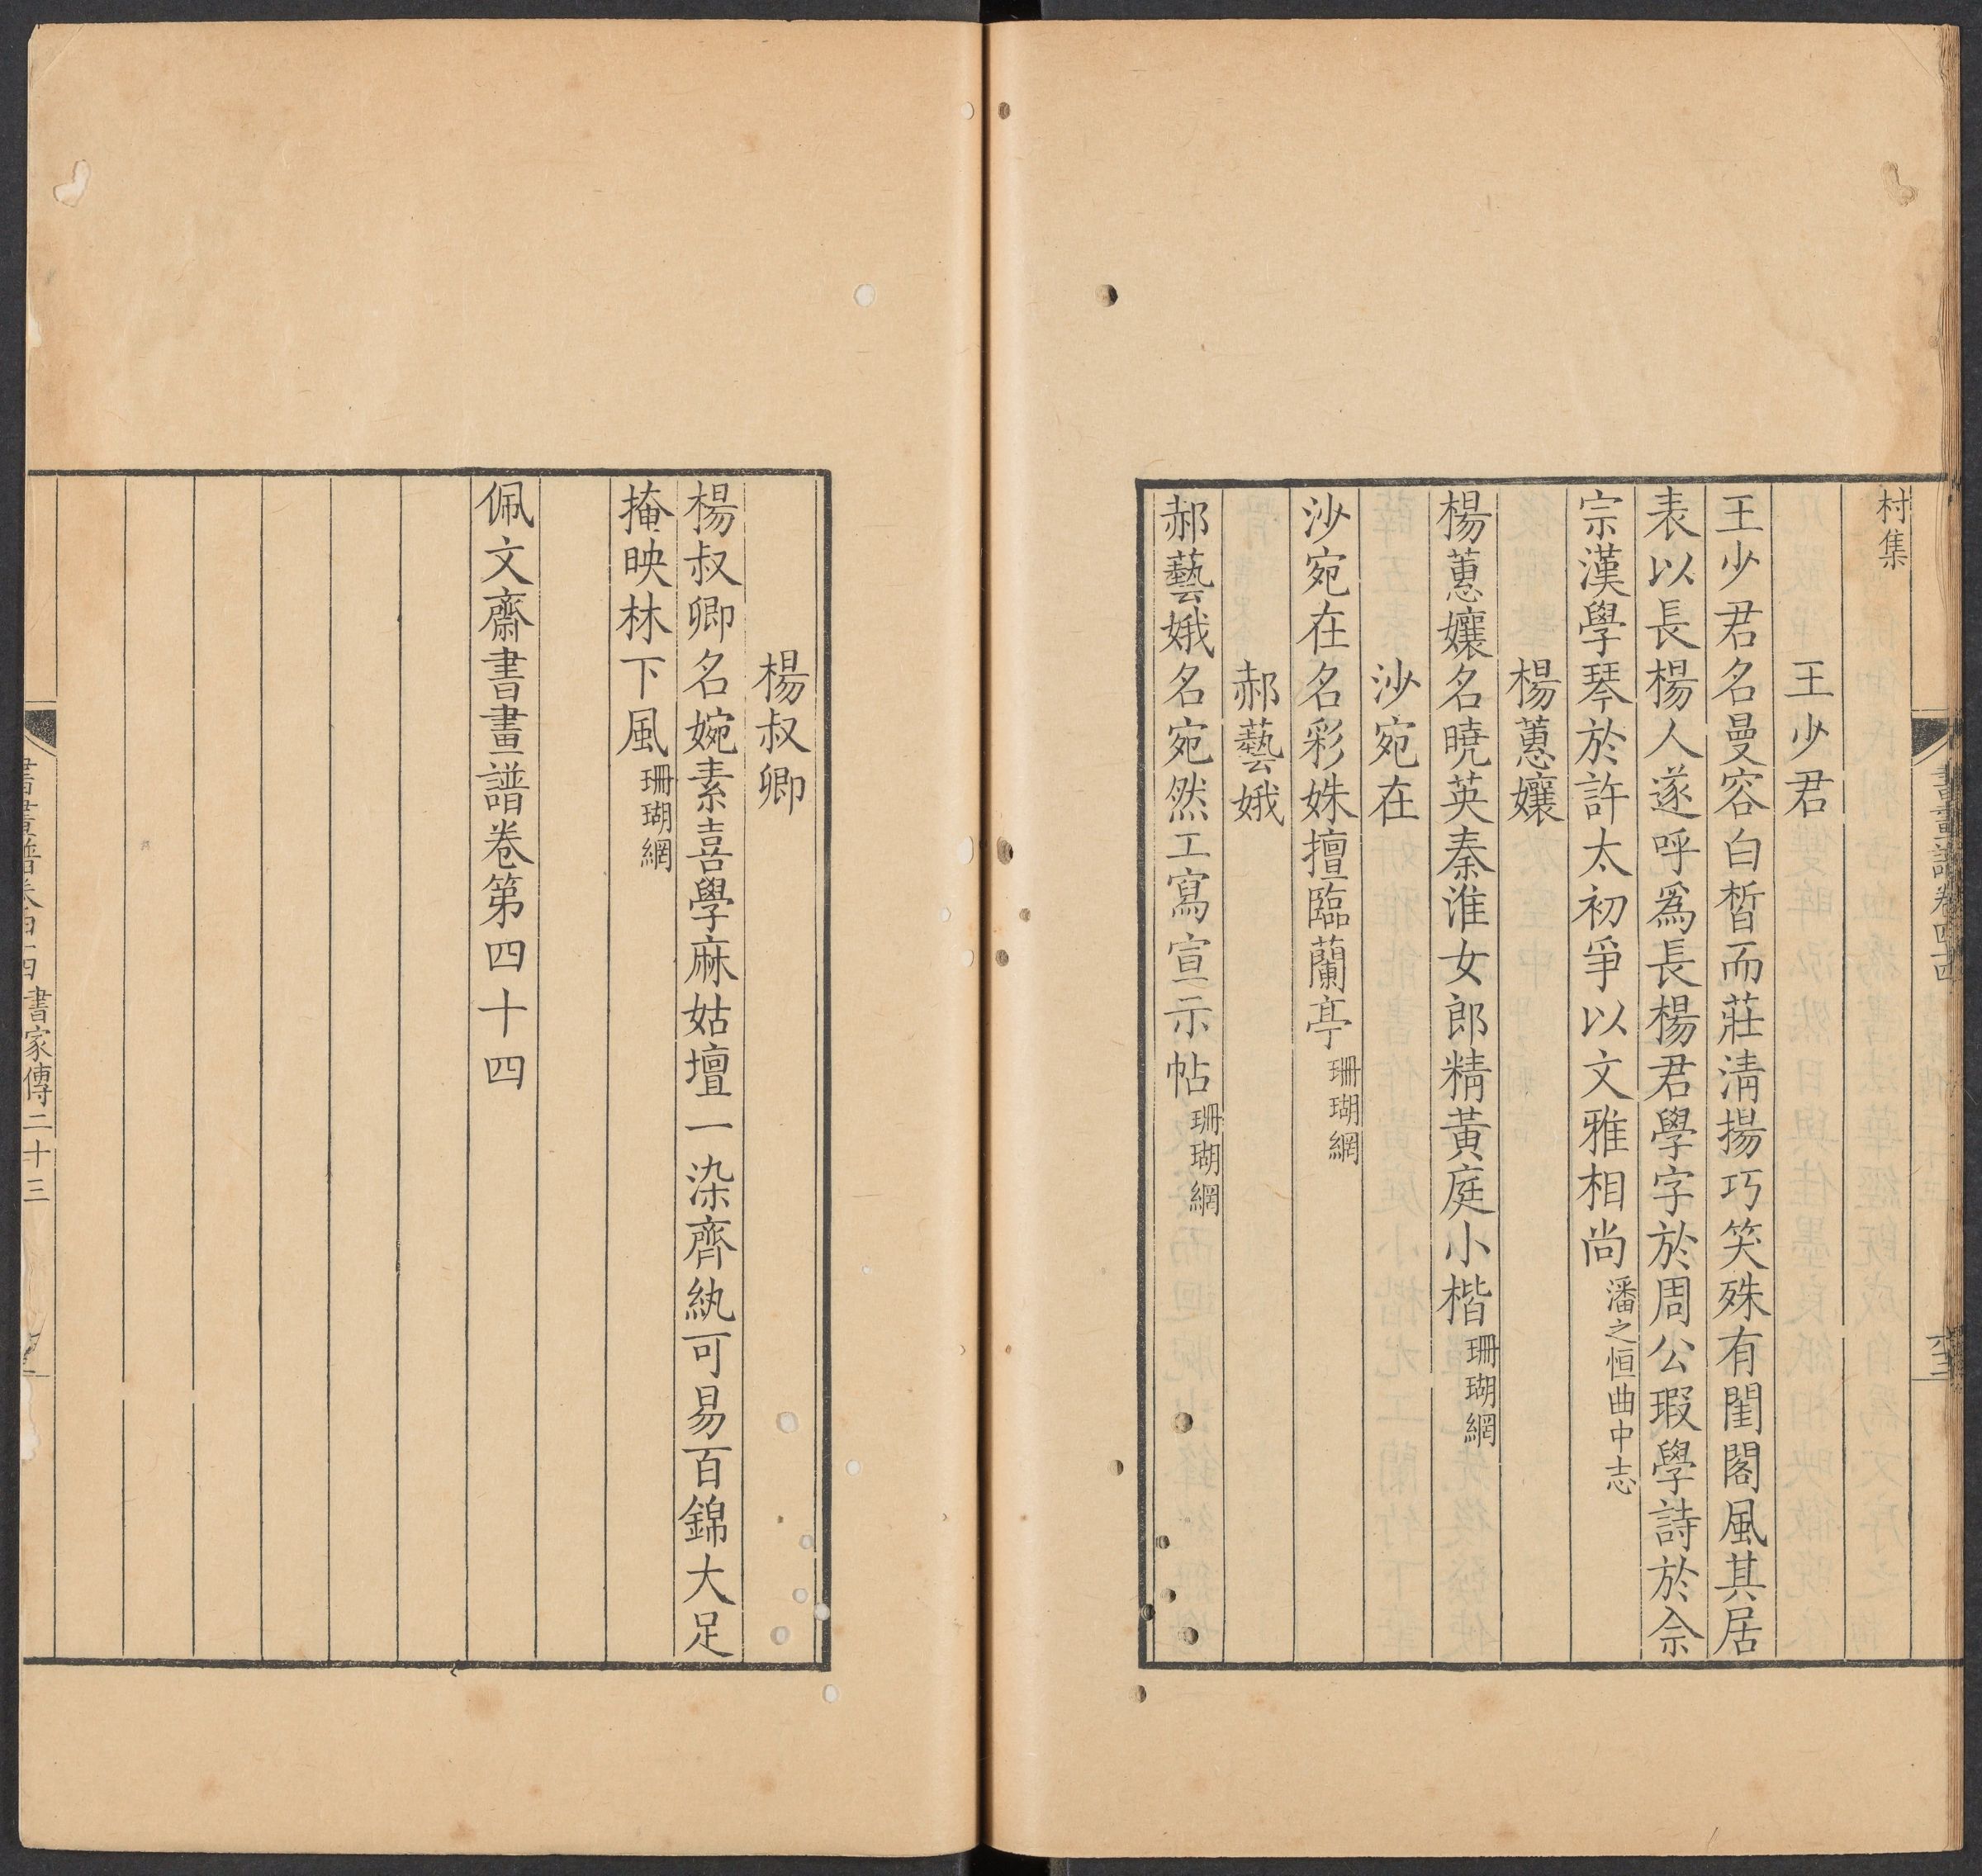 村集
王少君
王少君名曼容白晳而莊淸揚巧笑殊有閨閣風其居
表以長楊人遂呼爲長楊君學字於周公瑕學詩於佘
宗漢學琴於許太初爭以文雅相尚潘之恒曲中志
楊蕙孃
楊蕙孃名曉英秦淮女郎精黃庭小楷珊瑚網
沙宛在
沙宛在名彩姝擅臨蘭亭珊瑚網
郝藝娥
郝藝娥名宛然工寫宣示帖珊瑚網
楊叔卿
楊叔卿名婉素喜學麻姑壇一染齊紈可易百錦大足
掩映林下風珊瑚網
佩文齋書畫譜卷第四十四
書畫譜卷四十四 書家傳二十三